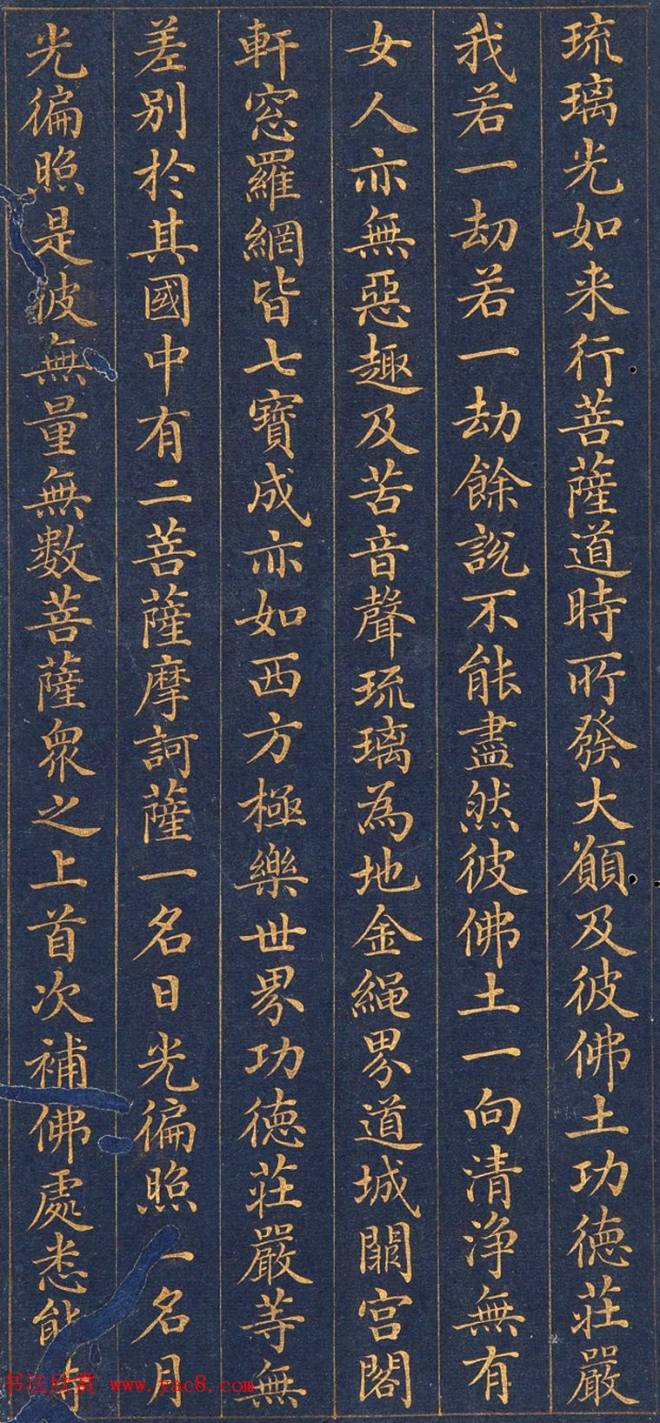 琉璃光如来行菩薩道時所發大願及彼佛土功德莊嚴
我若一劫若一劫餘說不能盡然彼佛土一向清淨無有
女人亦無惡趣及苦音聲琉璃為地金繩界道城闕宮閣
軒窓羅網皆七寶成亦如西方極樂世界功德莊嚴等無
差別於其國中有二菩薩摩訶薩一名日光徧照一名月
光徧照是彼無量無數菩薩衆之上首次補佛處悉能持
书法欣赏 www.yac8.com